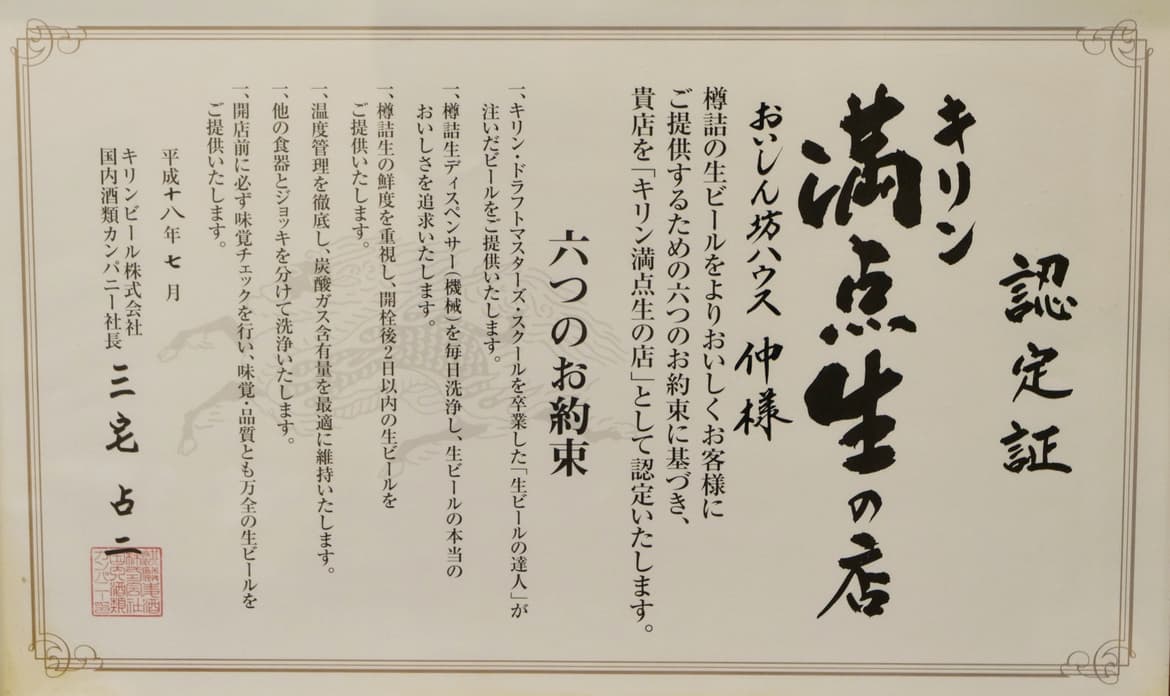 認定証
キリン
満点生の店
おいしん坊ハウス 仲様
樽詰の生ビールをよりおいしくお客様に
ご提供するための六つのお約束に基づき、
貴店を「キリン満点生の店」として認定いたします。
六つのお約束
一、キリン・ドラフトマスターズ・スクールを卒業した「生ビールの達人」が
注いだビールをご提供いたします。
一、樽詰生ディスペンサー(機械)を毎日洗浄し、生ビールの本当の
おいしさを追求いたします。
一、樽詰生の鮮度を重視し、開栓後2日以内の生ビールを
ご提供いたします。
一、温度管理を徹底し、炭酸ガス含有量を最適に維持いたします。
一、他の食器とジョッキを分けて洗浄いたします。
一、開店前に必ず味覚チェックを行い、味覚・品質とも万全の生ビールを
ご提供いたします。
平成十八年七月
キリンビール株式会社
国内酒類カンパニー社長 三宅占二